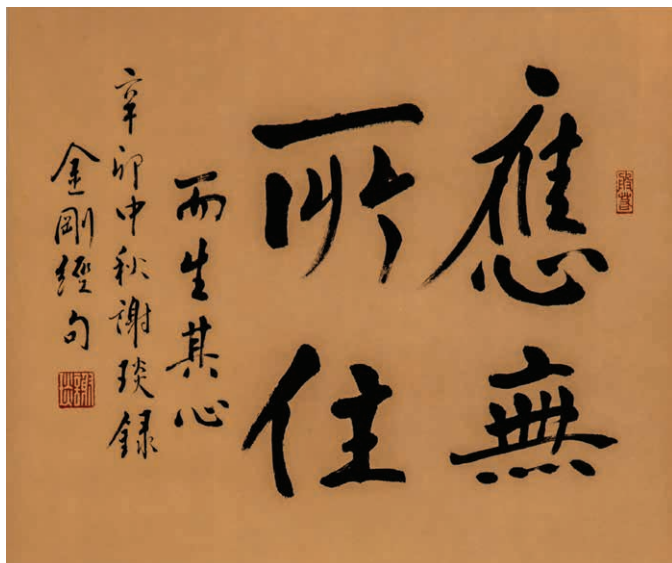 應無
所住
而生其心
辛卯中秋謝琰録
金剛經句